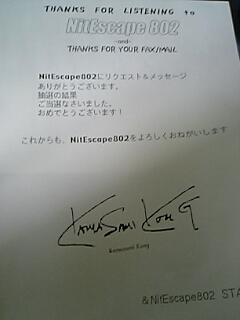 THANKS FOR LISTENING to
NitEscape 802
-and-
THANKS FOR YOUR FAX/MAIL
NitEscape802にリクエスト&メッセージ
ありがとうございます。
抽選の結果
ご当選なさいました。
おめでとうございます!
これからも、NitEscape802をよろしくおねがいします
Kamasami Kong
Kamasami Kong
&NitEscape802 STA